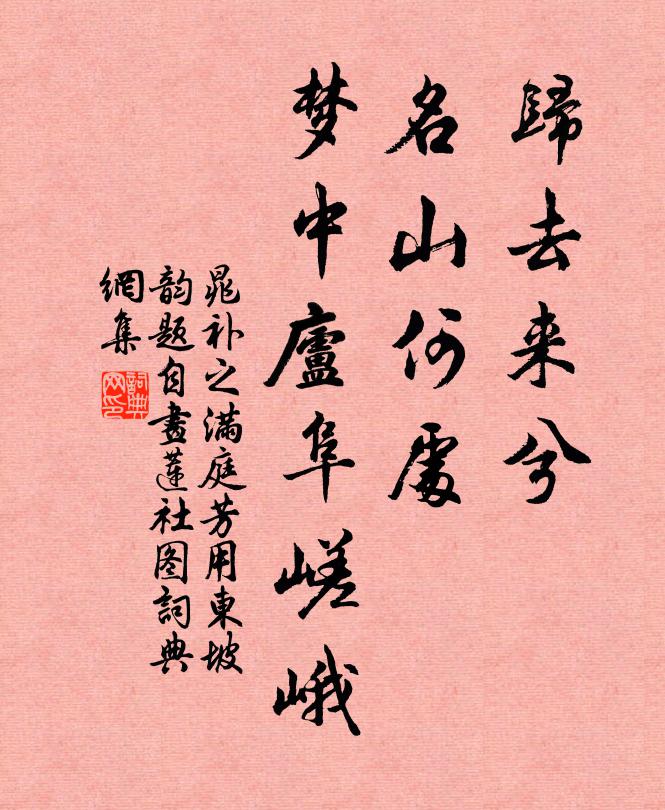 歸去来兮
名山何處
梦中廬阜嵯峨
晁补之满庭芳用東坡
韵题自畫莲社图詞典
網集
詞典
网印